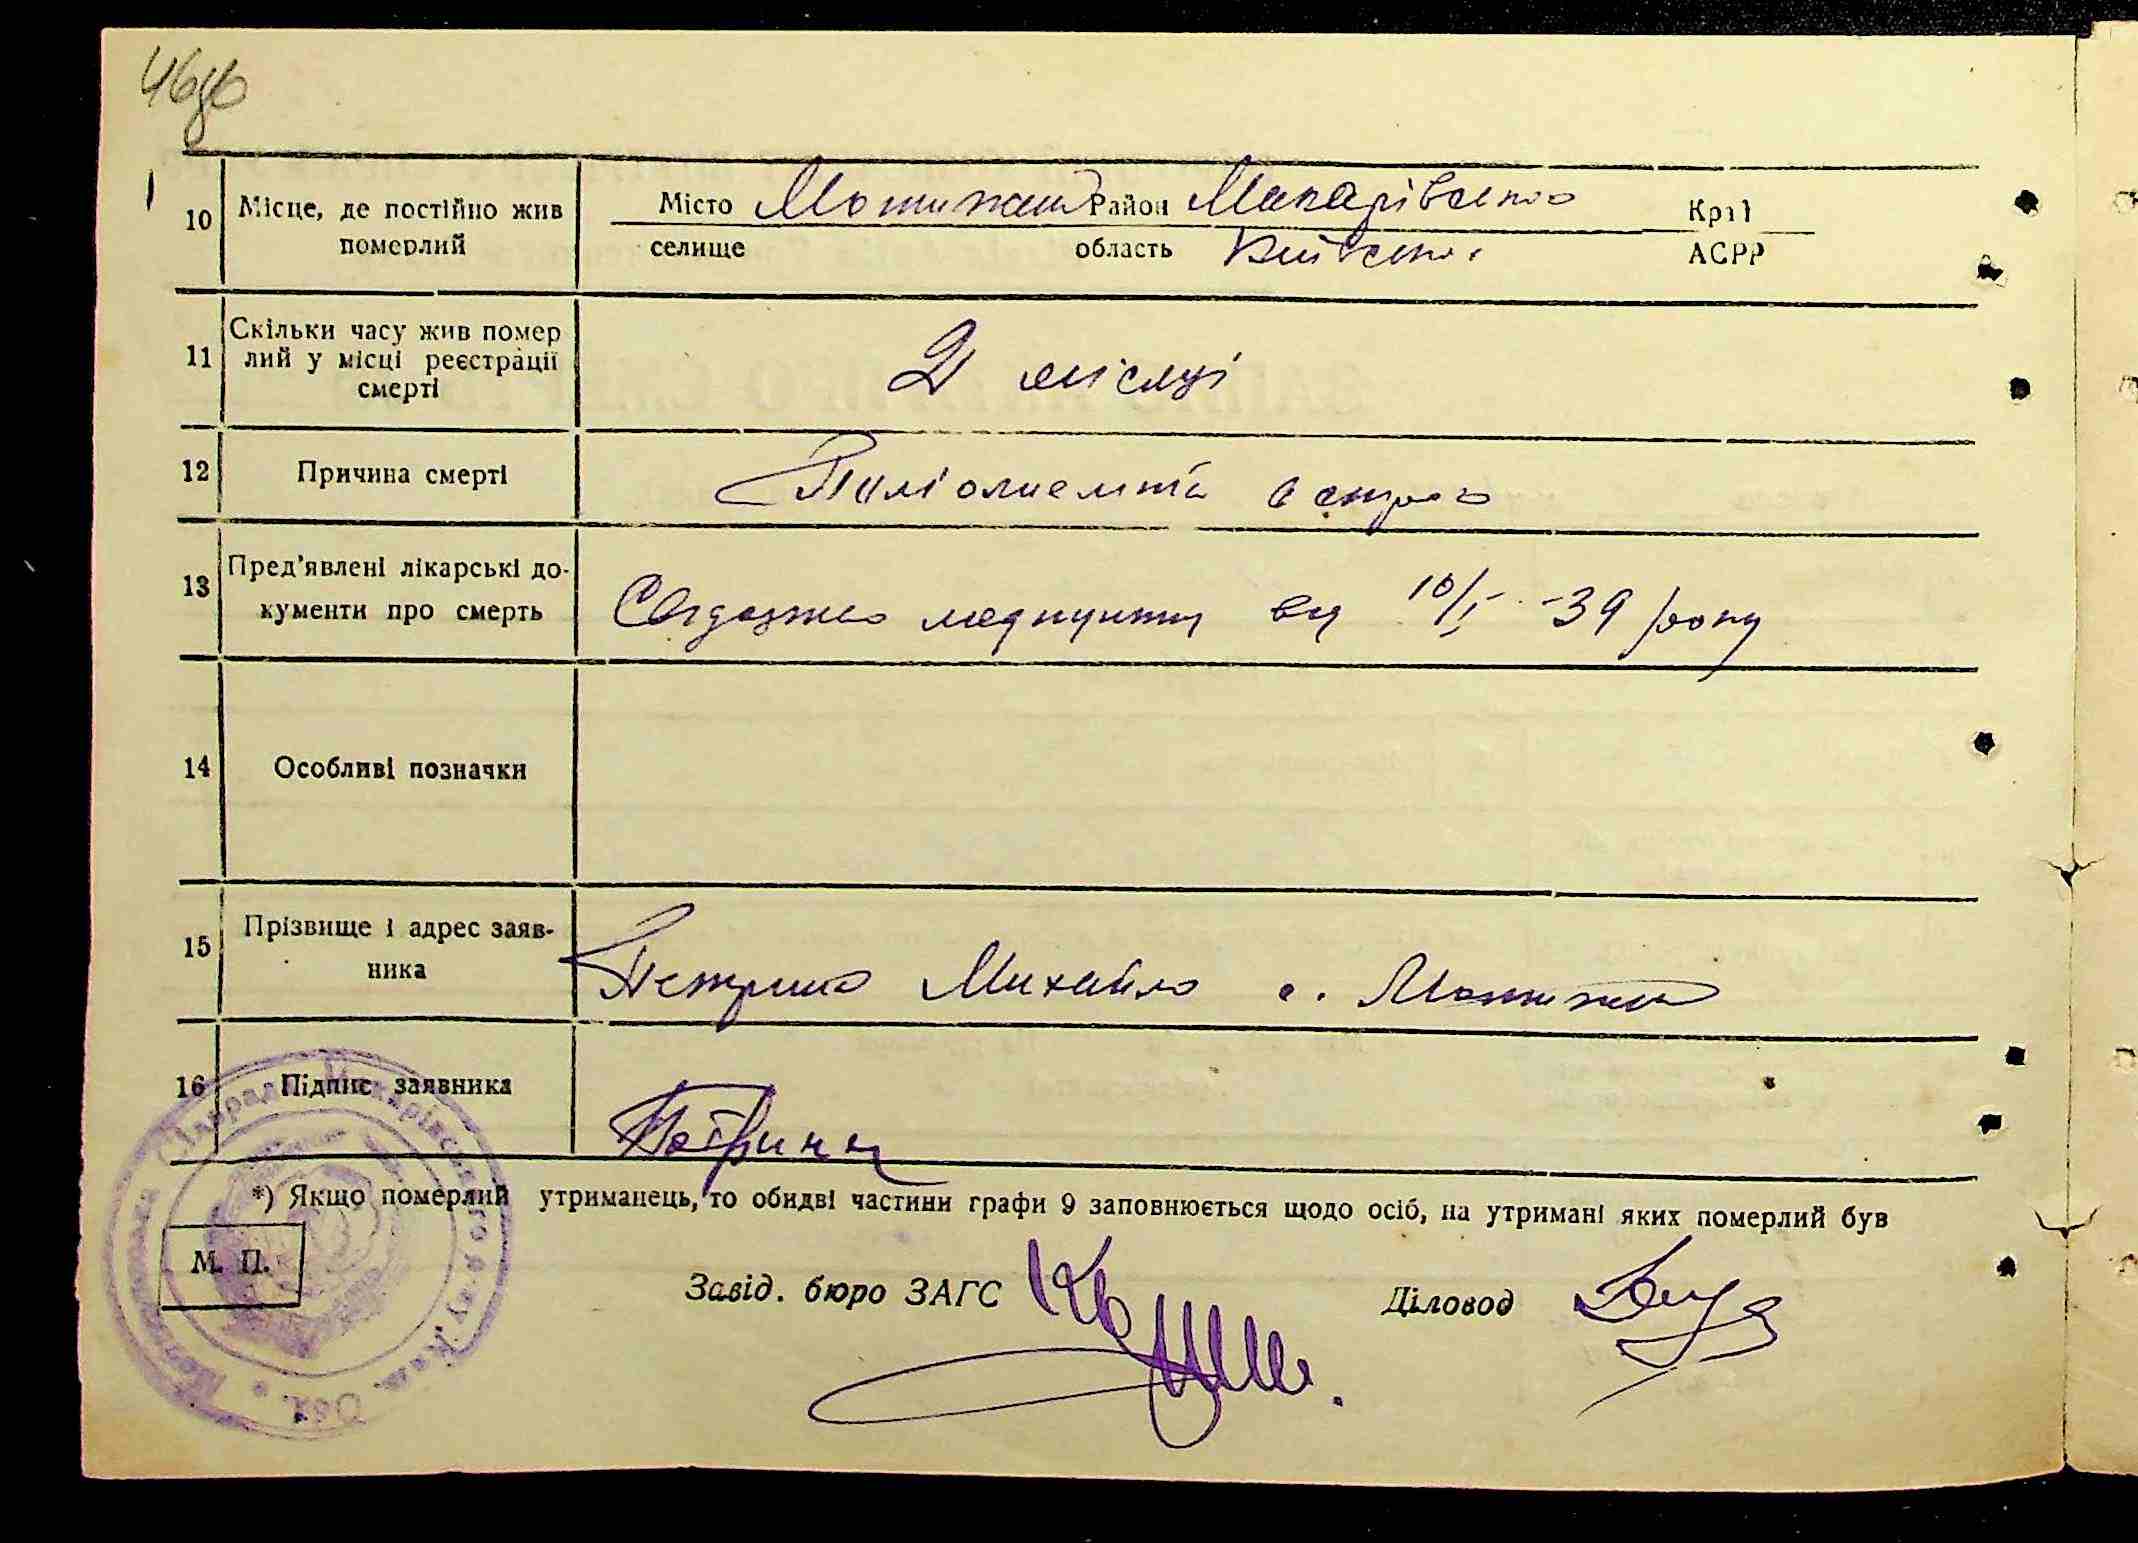 46зв
10 Місце, де постійно жив померлий
Місто Мотижин Район Макарівського Край
селище область Київської АСРР
11 Скільки часу жив помер
лий у місці реєстрації
смерті
2 місяці
12 Причина смерті
гостра
13 Пред'явлені лікарські до-
кументи про смерть
медпункту від 10/I -39 року
14 Особливі позначки
15 Прізвище і адрес заяв-
ника
Петрина Михайло с. Мотижин
16 Підпис заявника
Петрина
*) Якщо померлий утриманець, то обидві частини графи 9 заповнюється щодо осіб, на утримані яких померлий був
М. П.
Завід. бюро ЗАГС Діловод